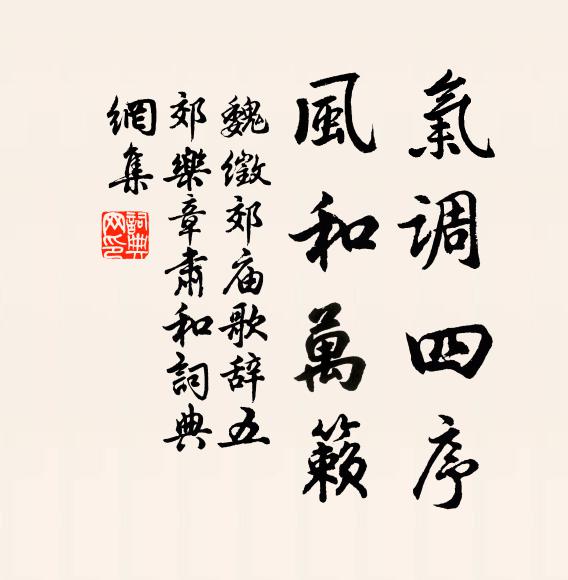 氣调四序
風和萬籟
魏徵郊庙歌辞五
郊樂章肅和詞典
網集
詞典
网印